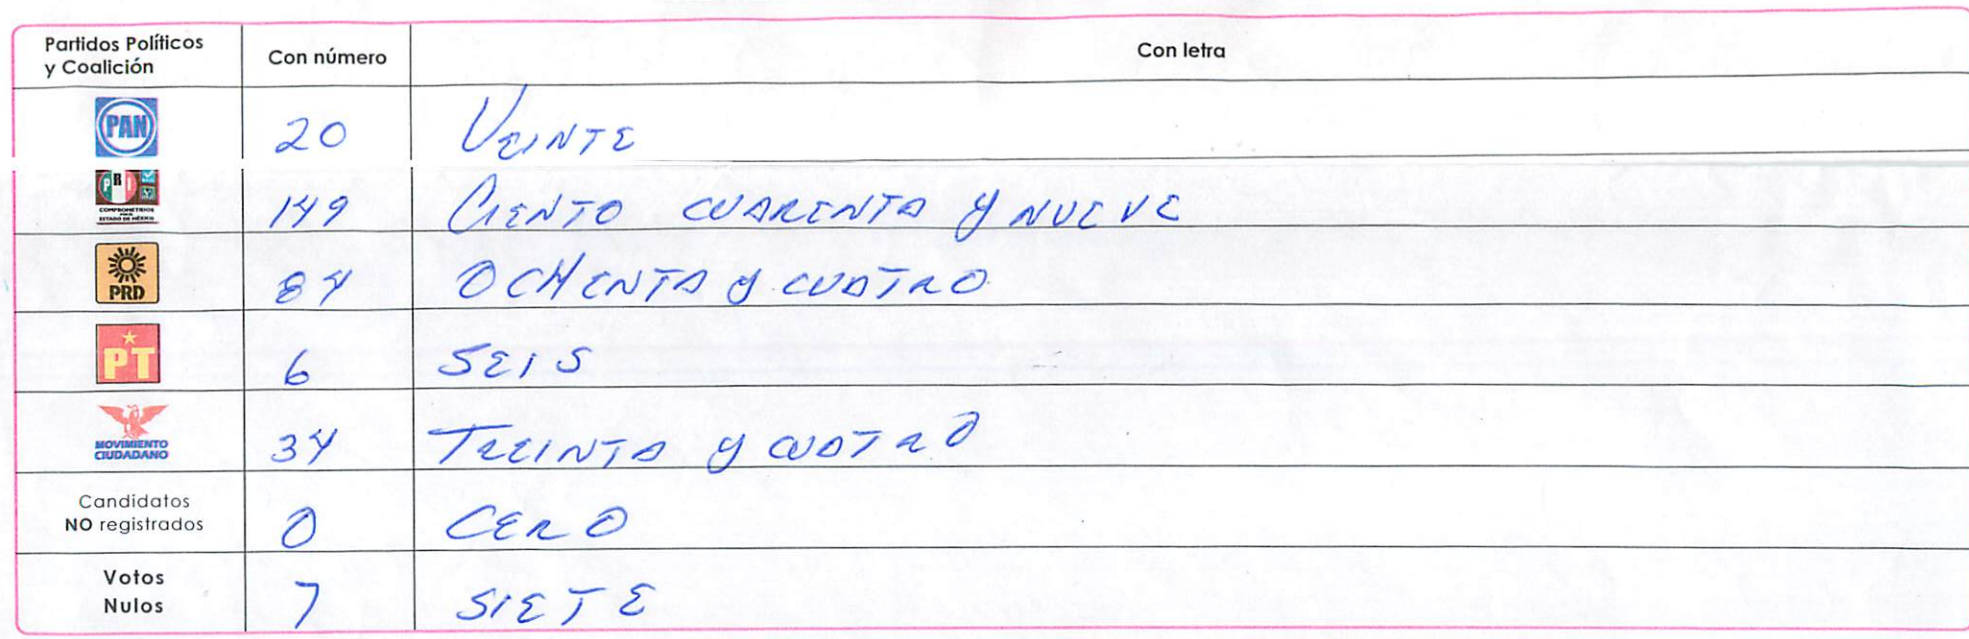 Partidos Políticos y Coalición Con número Con letra
PAN 20 VEINTE
PRI COMPROMETIDOS ESTADO DE MÉXICO 149 CIENTO CUARENTA Y NUEVE
PRD 84 OCHENTA Y CUATRO
PT 6 SEIS
MOVIMIENTO CIUDADANO 34 TREINTA Y CUATRO
Candidatos NO registrados 0 CERO
Votos Nulos 7 SIETE